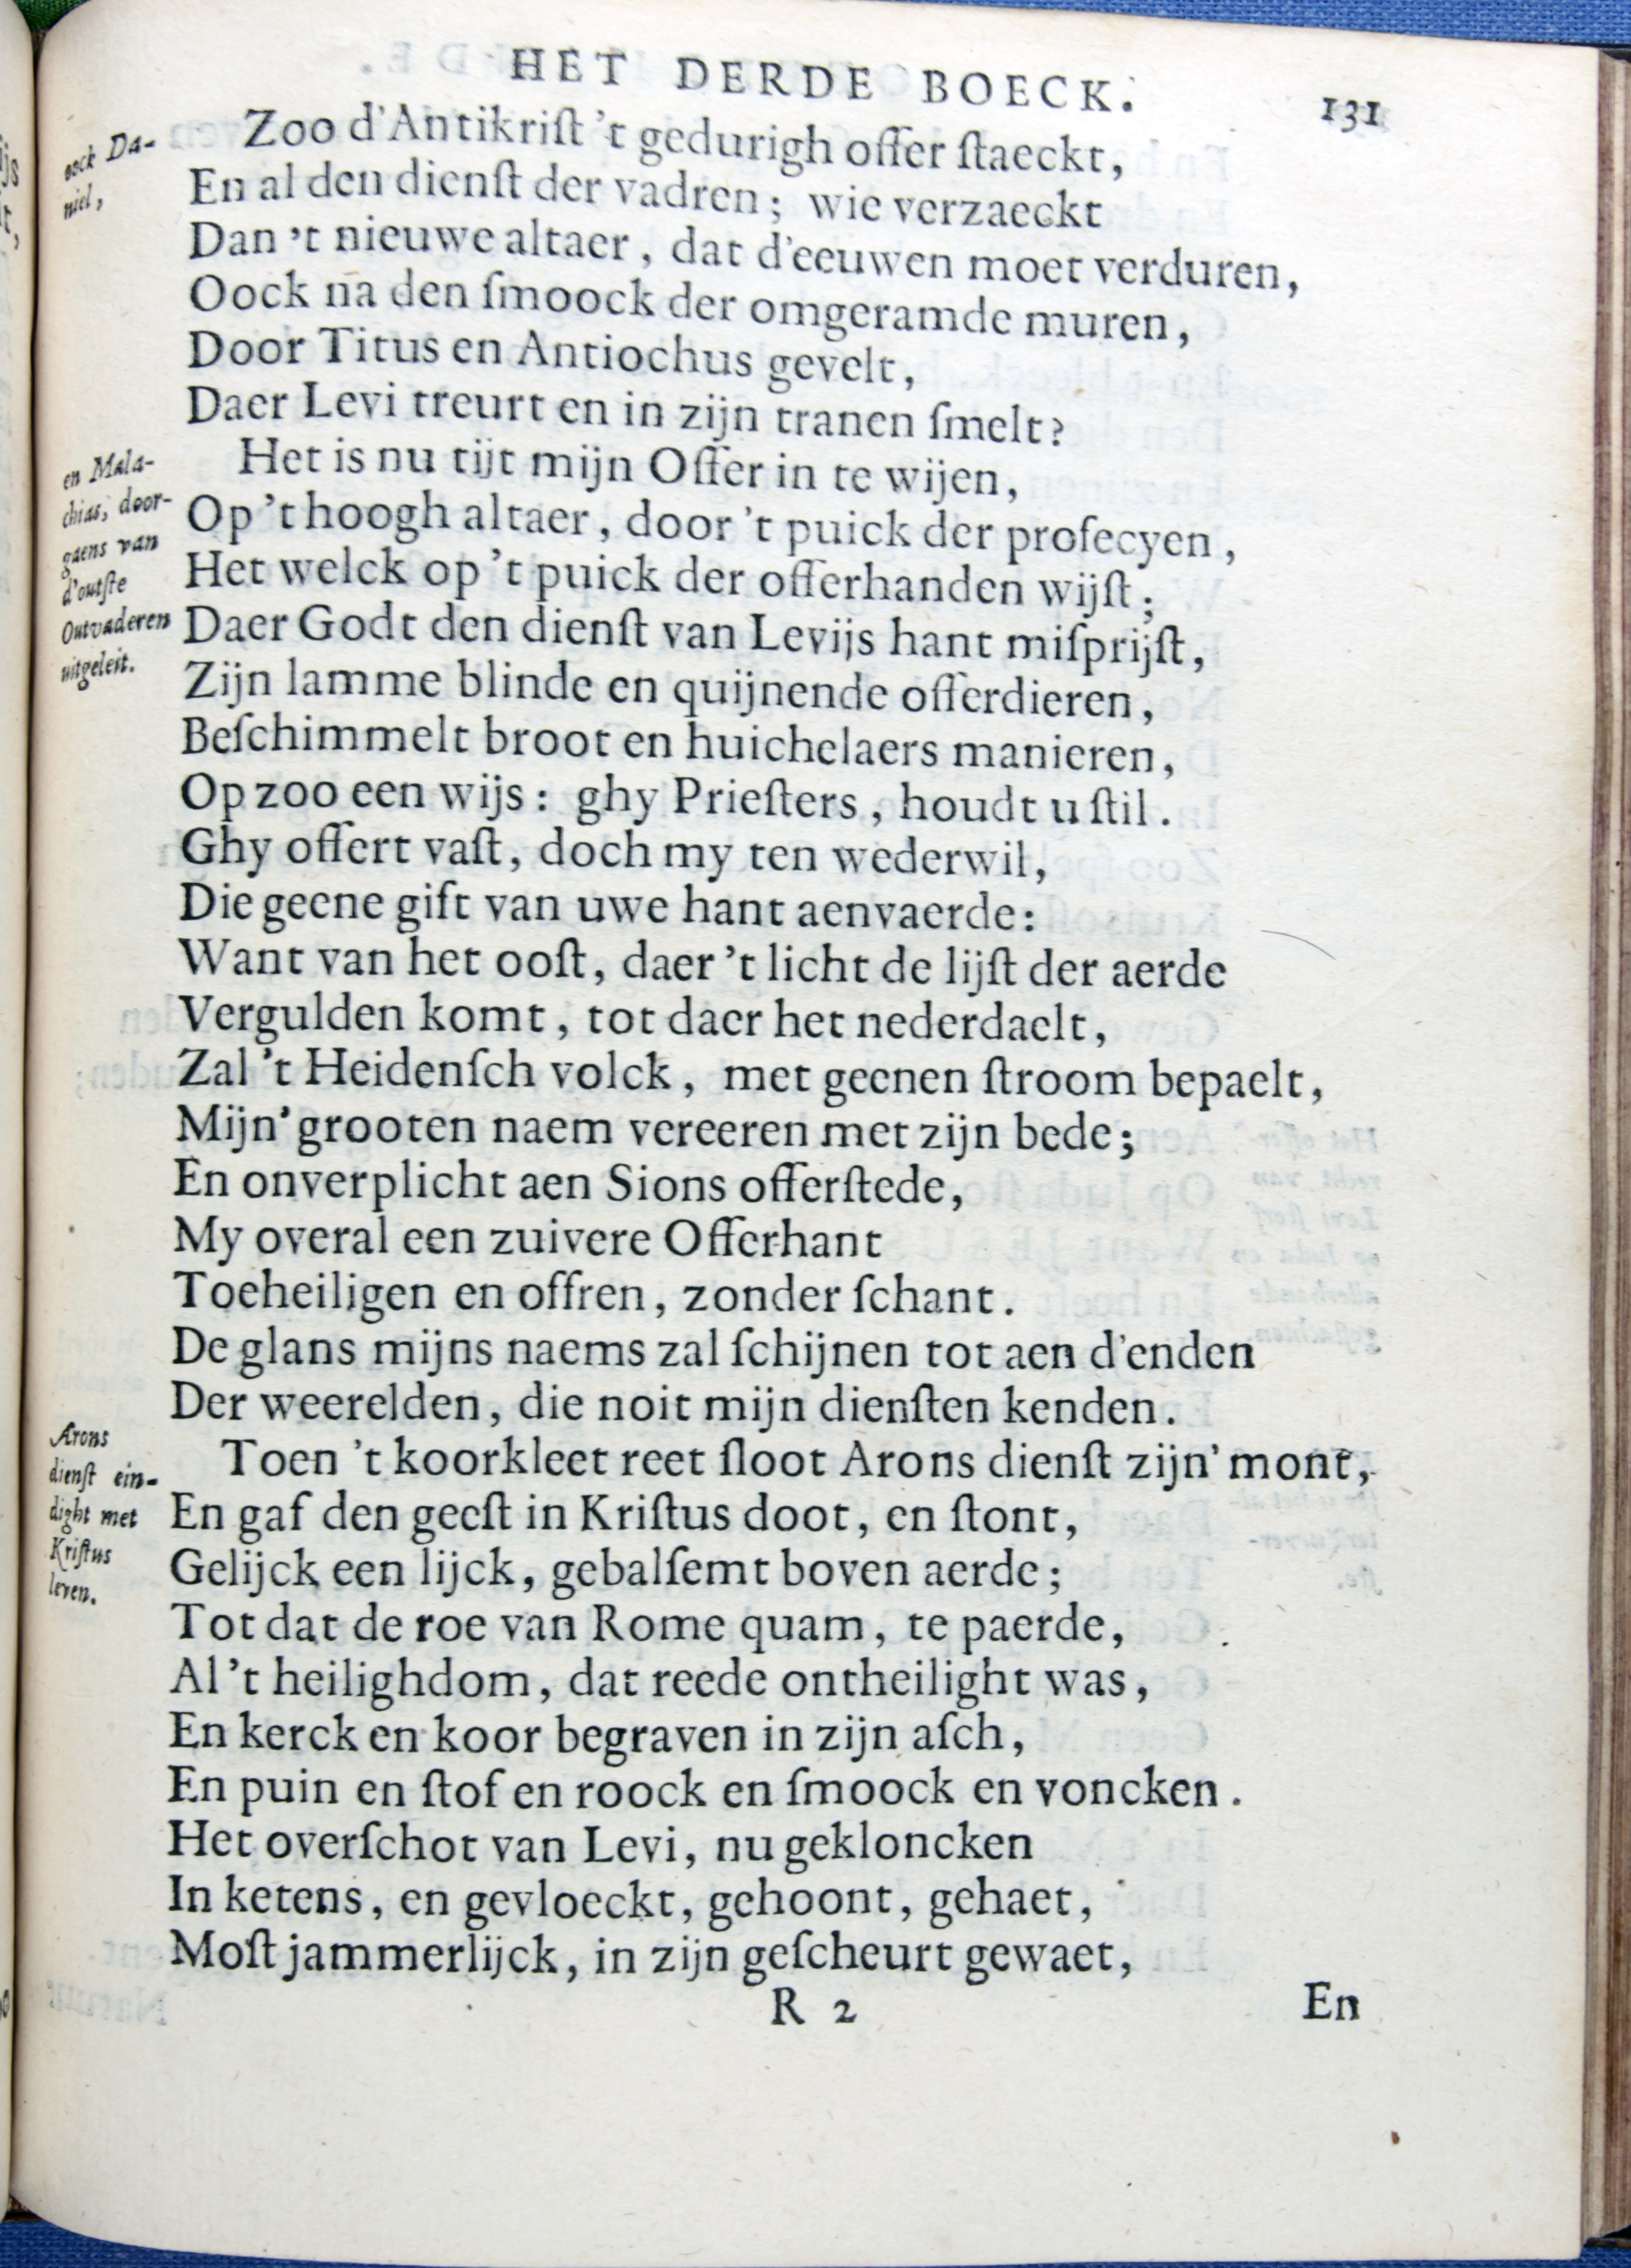 HET DERDE BOECK.
131
oock Da-
niel,
Zoo d'Antikriſt 't gedurigh offer ſtaeckt,
En al den dienſt der vadren; wie verzaeckt
Dan 't nieuwe altaer, dat d'eeuwen moet verduren,
Oock na den ſmoock der omgeramde muren,
Door Titus en Antiochus gevelt,
Daer Levi treurt en in zijn tranen ſmelt?
en Mala-
chias, door-
gaens van
d'outſte
Outvaderen
uitgeleit.
Het is nu tijt mijn Offer in te wijen,
Op 't hoogh altaer, door 't puick der profecyen,
Het welck op 't puick der offerhanden wijſt;
Daer Godt den dienſt van Levijs hant miſprijſt,
Zijn lamme blinde en quijnende offerdieren,
Beſchimmelt broot en huichelaers manieren,
Op zoo een wijs: ghy Prieſters, houdt u ſtil.
Ghy offert vaſt, doch my ten wederwil,
Die geene gift van uwe hant aenvaerde:
Want van het ooſt, daer 't licht de lijſt der aerde
Vergulden komt, tot daer het nederdaelt,
Zal 't Heidenſch volck, met geenen ſtroom bepaelt,
Mijn' grooten naem vereeren met zijn bede;
En onverplicht aen Sions offerſtede,
My overal een zuivere Offerhant
Toeheiligen en offren, zonder ſchant.
De glans mijns naems zal ſchijnen tot aen d'enden
Der weerelden, die noit mijn dienſten kenden.
Arons
dienſt ein-
dight met
Kriſtus
leven.
Toen 't koorkleet reet ſloot Arons dienſt zijn' mont,
En gaf den geeſt in Kriſtus doot, en ſtont,
Gelijck een lijck, gebalſemt boven aerde;
Tot dat de roe van Rome quam, te paerde,
Al 't heilighdom, dat reede ontheilight was,
En kerck en koor begraven in zijn aſch,
En puin en ſtof en roock en ſmoock en voncken.
Het overſchot van Levi, nu gekloncken
In ketens, en gevloeckt, gehoont, gehaet,
Moſt jammerlijck, in zijn geſcheurt gewaet,
R 2
En